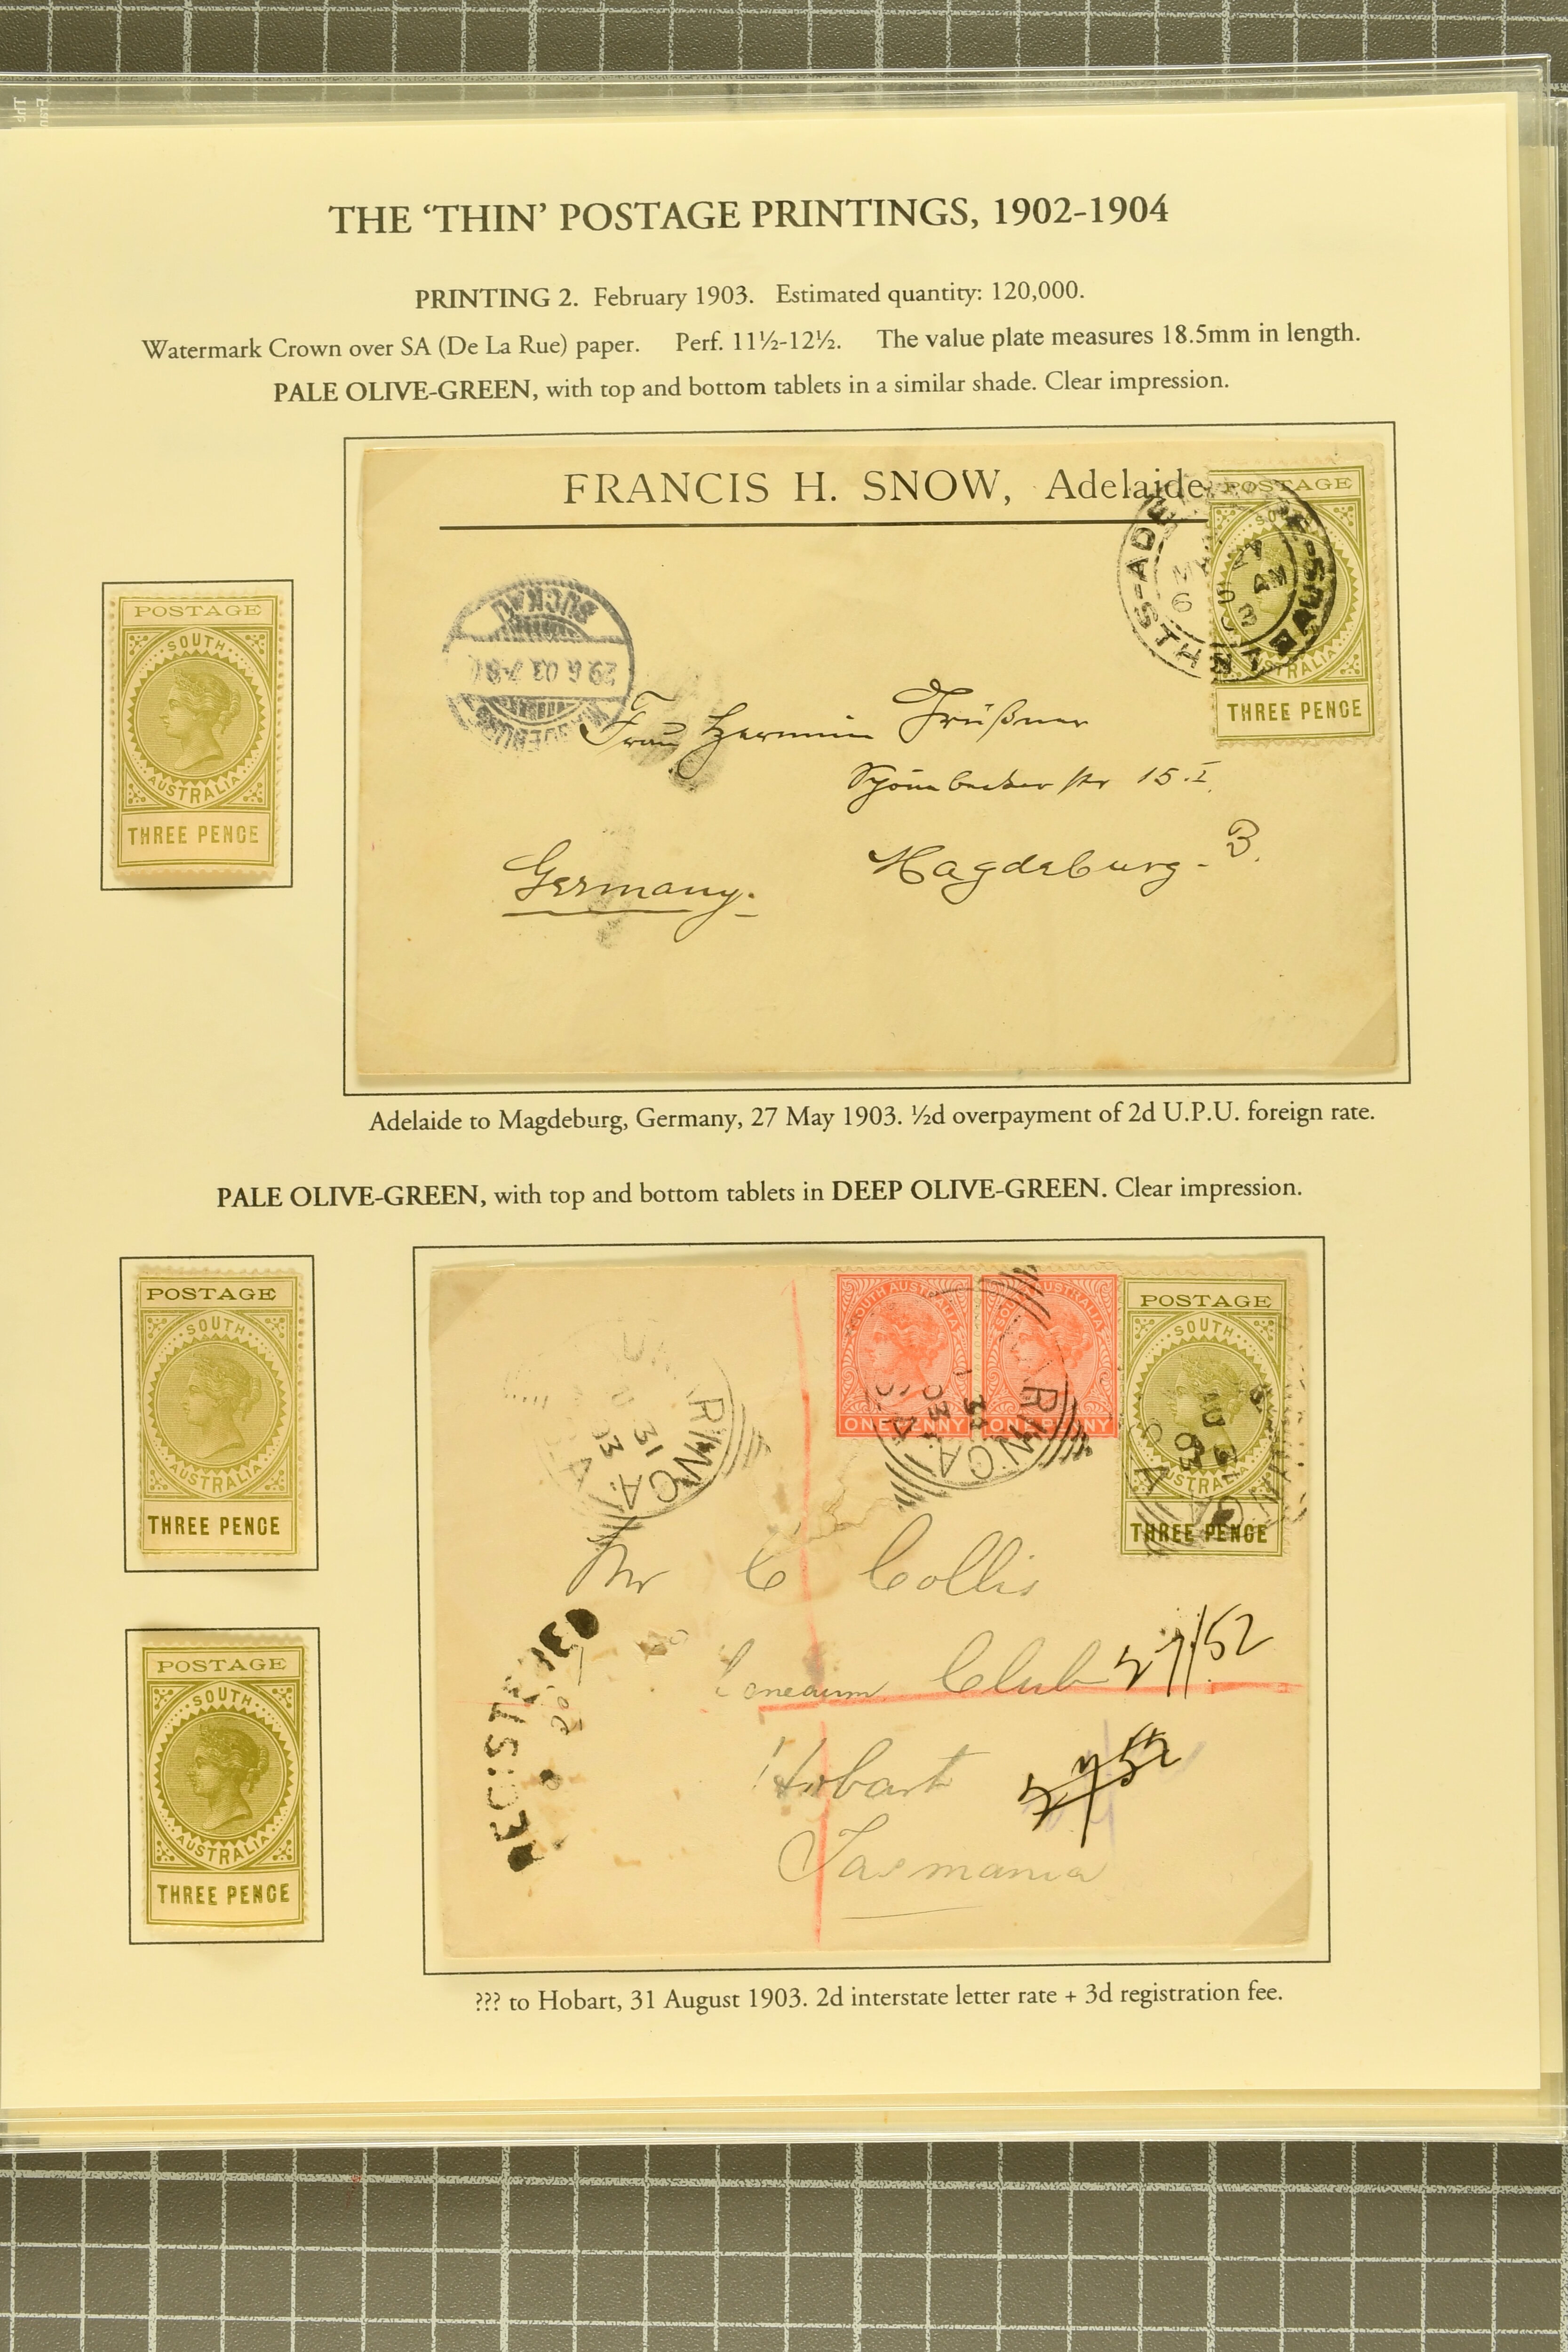 THE ‘THIN’ POSTAGE PRINTINGS, 1902-1904
PRINTING 2. February 1903. Estimated quantity: 120,000.
Watermark Crown over SA (De La Rue) paper. Perf. 11½-12½. The value plate measures 18.5mm in length.
PALE OLIVE-GREEN, with top and bottom tablets in a similar shade. Clear impression.
POSTAGE
SOUTH
AUSTRALIA
THREE PENCE
FRANCIS H. SNOW, Adelaide
POSTAGE
AUSTRALIA
THREE PENCE
29.6.03.7-8
BUCKAU
Frau Hermin
15.I.
Magdeburg-B.
Germany.
Adelaide to Magdeburg, Germany, 27 May 1903. ½d overpayment of 2d U.P.U. foreign rate.
PALE OLIVE-GREEN, with top and bottom tablets in DEEP OLIVE-GREEN. Clear impression.
POSTAGE
SOUTH
AUSTRALIA
THREE PENCE
POSTAGE
SOUTH
AUSTRALIA
THREE PENCE
SOUTH AUSTRALIA
ONE PENNY
SOUTH AUSTRALIA
ONE PENNY
POSTAGE
SOUTH
AUSTRALIA
THREE PENCE
31
03
Mr C Collis
Club
Hobart
Tasmania
REGISTERED
??? to Hobart, 31 August 1903. 2d interstate letter rate + 3d registration fee.